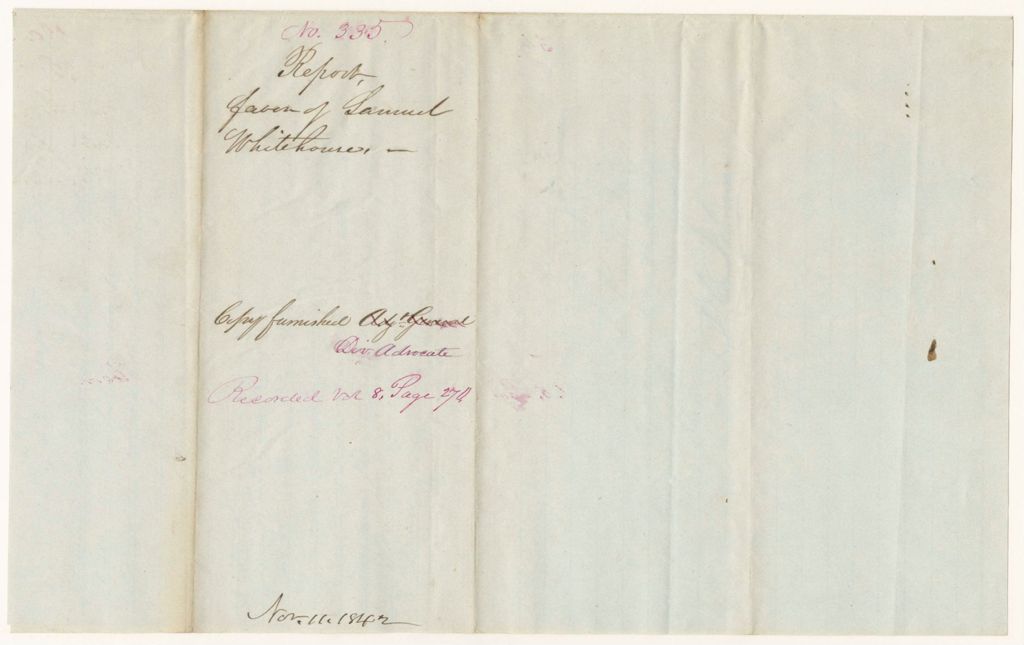 No. 335.
Report,
favor of Samuel
Whitehouse. —
Copy furnished Adjt General
Div. Advocate
Recorded Vol 8, Page 274
Nov. 11. 1842